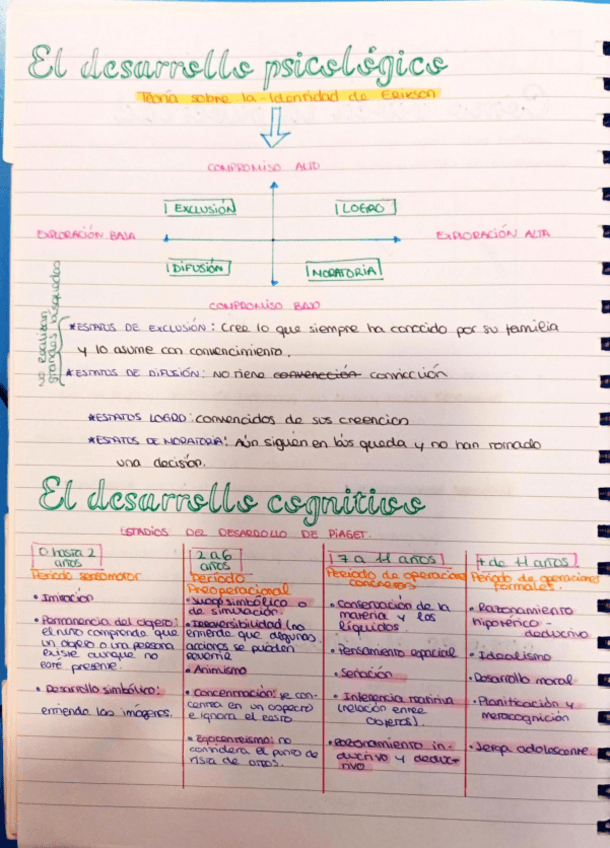 El desarrollo psicológico
Teoría sobre la Identidad de Erikson
COMPROMISO ALTO
EXCLUSIÓN
LOGRO
EXPLORACIÓN BAJA
EXPLORACIÓN ALTA
DIFUSIÓN
MORATORIA
COMPROMISO BAJO
no realizan
grandes búsquedas
*ESTATUS DE EXCLUSIÓN: Cree lo que siempre ha conocido por su familia
y lo asume con convencimiento.
*ESTATUS DE DIFUSIÓN: NO tiene convencción convicción
*ESTATUS LOGRO: convencidos de sus creencias
*ESTATUS DE MORATORIA: Aún siguen en búsqueda y no han tomado
una decisión.
El desarrollo cognitivo
ESTADIOS DEL DESARROLLO DE PIAGET.
0 hasta 2
años
Período sensomotor
• Imitación
• Permanencia del objeto:
el niño comprende que
un objeto o una persona
existe aunque no
esté presente.
• Desarrollo simbólico:
entiende las imágenes.
2 a 6
años
Período
Preoperacional
• Juego simbólico o
de simulación.
• Irreversibilidad (no
entiende que algunas
acciones se pueden
• Animismo
• Concentración: se con-
centra en un aspecto
e ignora el resto
• Egocentrismo: no
considera el punto de
vista de otros.
7 a 11 años
Período de operaciones
concretas
• Conservación de la
materia y los
líquidos.
• Pensamiento espacial
• Seriación
• Inferencia transitiva
(relación entre
objetos).
• Razonamiento in-
ductivo y deduc-
tivo
+ de 11 años
Período de operaciones
formales.
• Razonamiento
hipotético-
deductivo
• Idealismo
• Desarrollo moral
• Planificación y
metacognición
• Jerga adolescente.